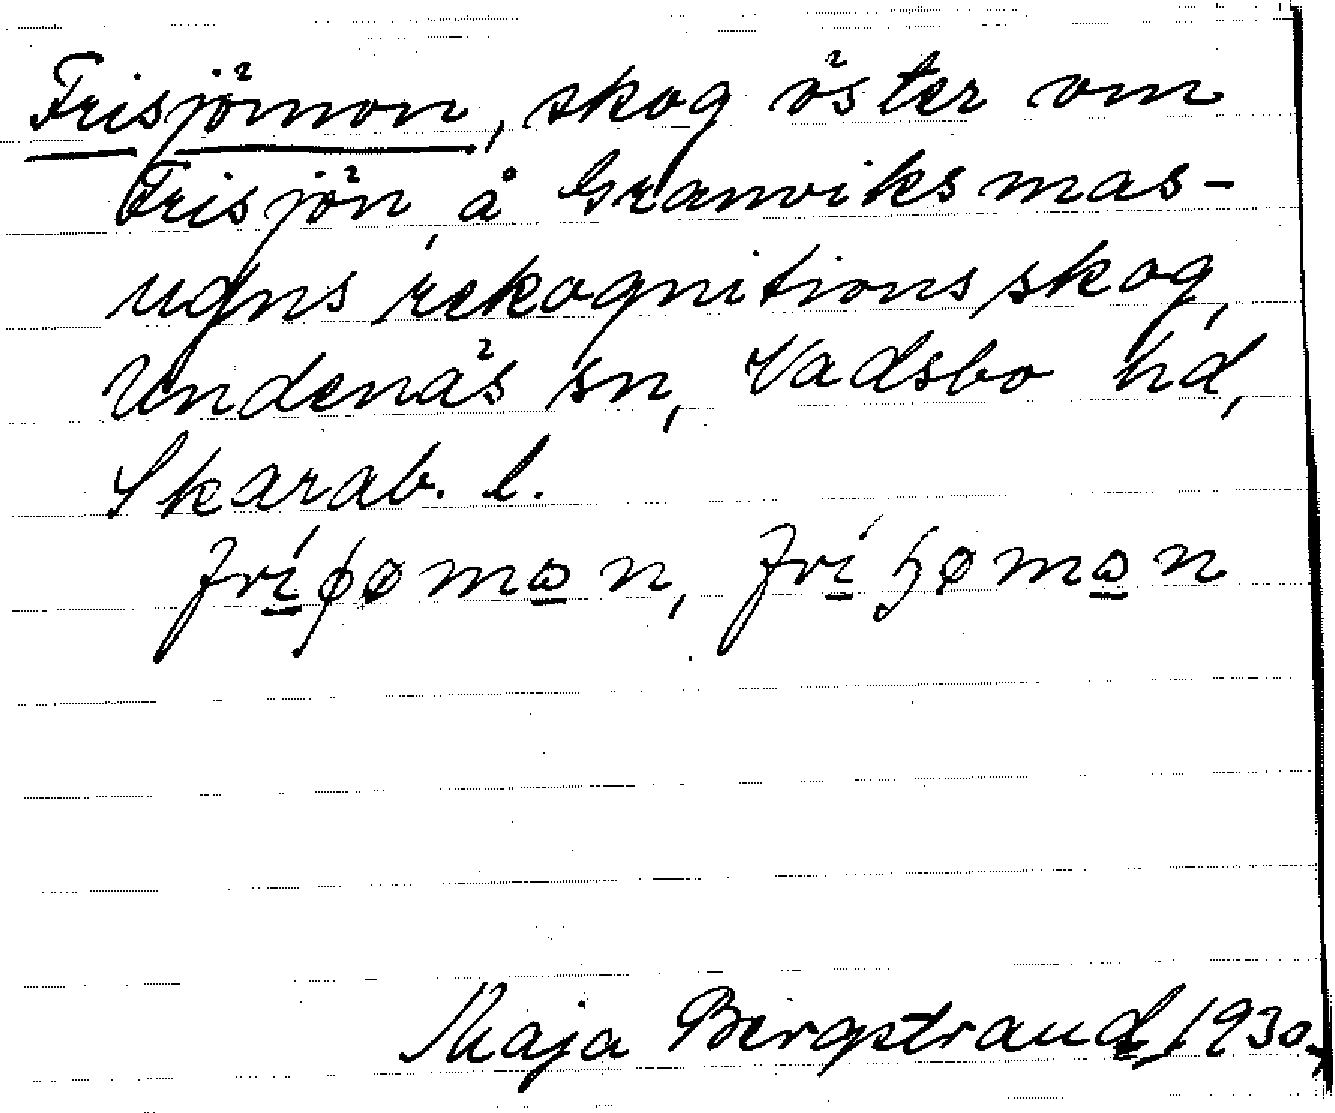 Frisjömon, skog öster om
Frisjön å Granviksmas-
ugns rekognitionsskog,
Undenäs sn, Vadsbo hd,
Skarab. l.
Maja Bergstrand 1930.